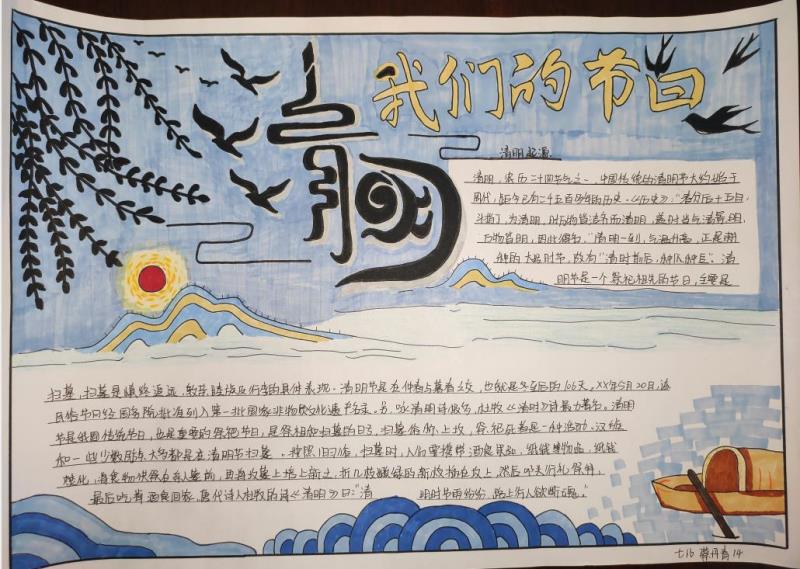 我们的节日
清明
清明起源
清明,农历二十四节气之一,中国传统的清明节大约始于
周代,距今已有二千五百多年的历史。《历书》:"春分后十五日,
斗指丁,为清明,时万物皆洁齐而清明,盖时当气清景明,
万物皆显,因此得名。"清明一到,气温升高,正是
种的大好时节,故有"清明前后,种瓜种豆"。清
明节是一个祭祀祖先的节日,主要是
扫墓,扫墓是慎终追远、敦亲睦族及行孝的具体表现。清明节是在仲春与暮春之交,也就是冬至后的106天。XX年5月20日,该
民俗节日经国务院批准列入第一批国家非物质文化遗产名录。另,咏清明诗很多,杜牧《清明》诗最为著名。清明
节是我国传统节日,也是重要的祭祀节日,是祭祖和扫墓的日子。扫墓俗称上坟,祭祀死者的一种活动。汉族
和一些少数民族大多都是在清明节扫墓。按照旧习俗,扫墓时,人们要携带酒食果品、纸钱等物品,
将食物供祭在亲人墓前,再将坟墓上培上新土,折几枝嫩绿的新枝插在坟上,然后叩头行礼祭拜,
最后吃掉酒食回家。唐代诗人杜牧的诗《清明》曰:"清 明时节雨纷纷,路上行人欲断魂。"
七16 14